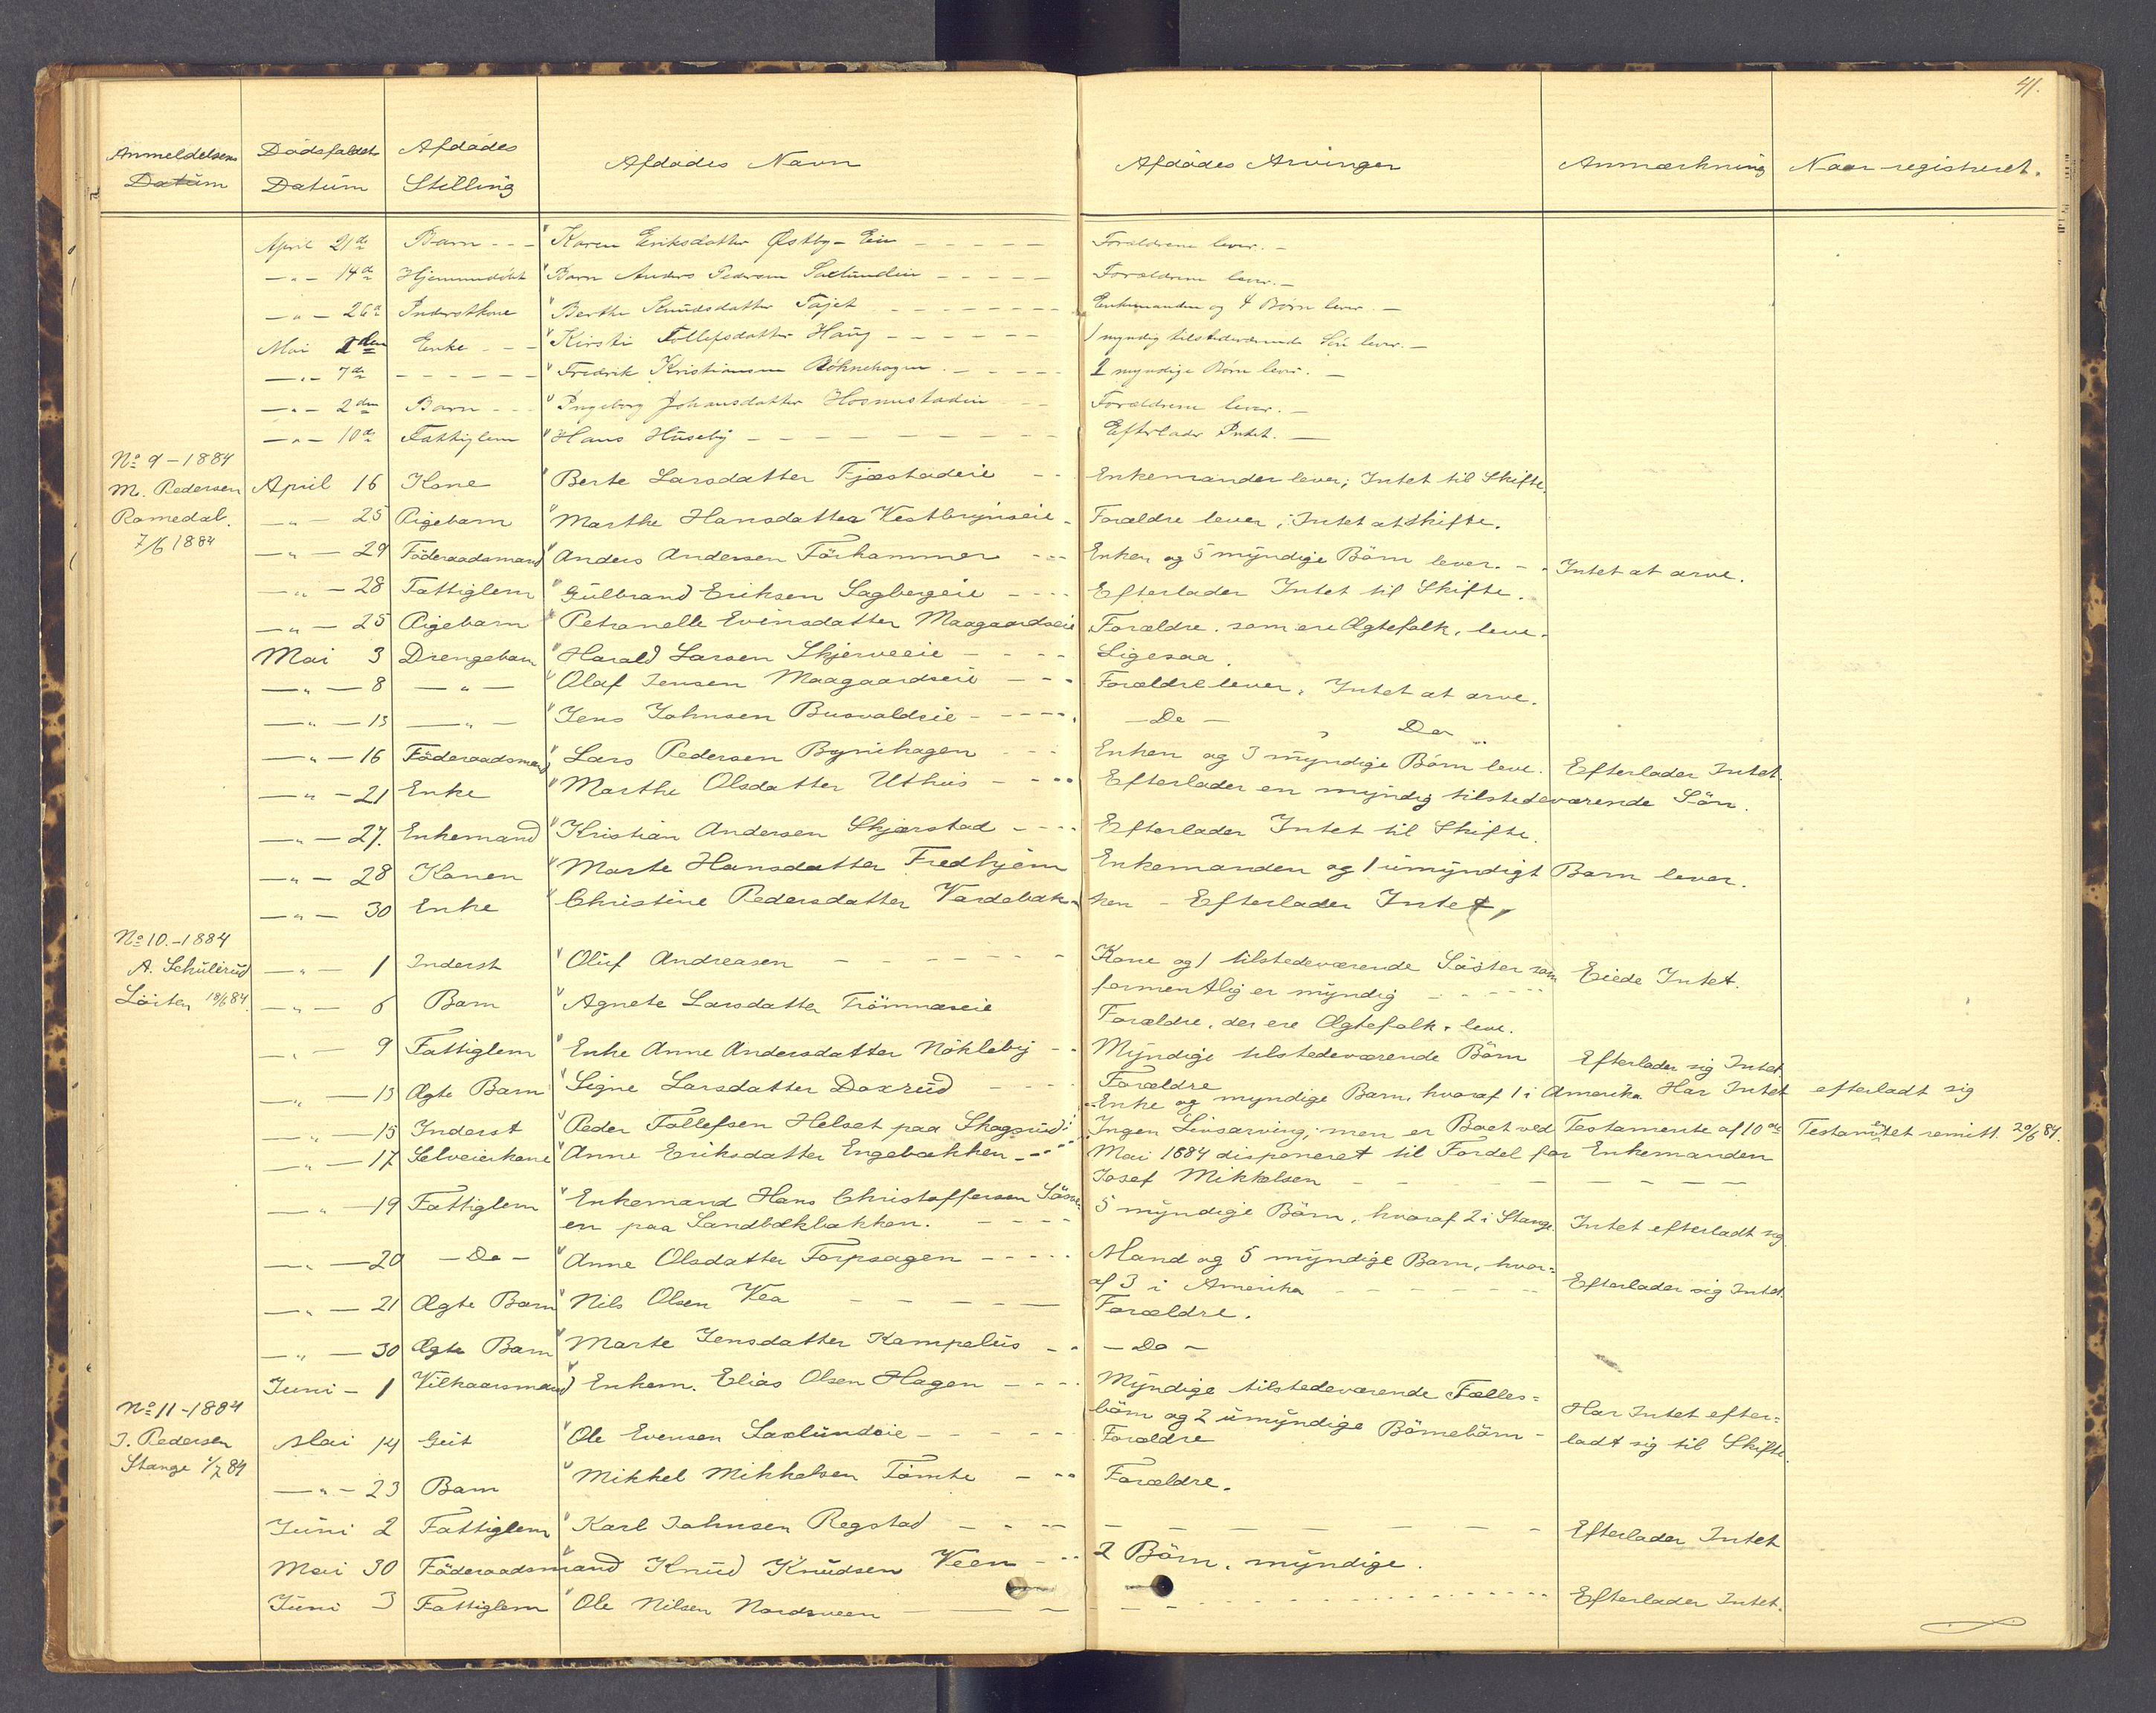 41.
Anmeldelsens Datum Dödsfaldets Datum Afdödes Stilling Afdödes Navn Afdödes Arvinger Anmærkning Naar registreret.
April 21de Barn - - - Karen Eriksdatter Østby-Eie - - - - - Forældrene lever. -
-"- 14de Hjemmedöbt Barn Anders Pedersen Saxlundeie - - - - - Forældrene lever. -
-"- 26de Inderstkone Berthe Knudsdatter Fajet - - - - - - - Enkemanden og 4 Börn lever. -
Mai den Enke - - - Kirsti Tollefsdatter Haug - - - - - - 1 myndig tilstedeværende Sön lever. -
-"- 7de - - - - - - Fredrik Kristiansen - - - - - 2 myndige Börn lever. -
-"- 2den Barn - - - Ingeborg Johansdatter - - - Forældrene lever. -
-"- 10de Fattiglem Hans Huseby - - - - - - - - Efterlader Intet. -
No 9 - 1884
M. Pedersen April 16 Kone Berte Larsdatter Fjæstadeie - - Enkemanden lever; Intet til Skifte.
Romedal. -"- 25 Pigebarn Marthe Hansdatter Vestbrynseie - Forældre lever; Intet at skifte.
7/6 1884 -"- 29 Föderaadsmand Anders Andersen Förhammer - - - Enken og 5 myndige Börn lever. - - Intet at arve.
-"- 28 Fattiglem Gulbrand Eriksen Sagbergeie - - - - Efterlader Intet til Skifte.
-"- 25 Pigebarn Petronelle Evensdatter Maagaardseie Forældre, som ere Ægtefolk, leve.
Mai 3 Drengebarn Harald Larsen Skjerveeie - - - - Ligesaa.
-"- 8 -"- Olaf Jensen Maagaardseie - - - Forældre lever, Intet at arve.
-"- 13 -"- Jens Johnsen Busvaldeie - - - - - - Do - Do
-"- 16 Föderaadsmand Lars Pedersen Brynihagen - - - Enken og 3 myndige Börn leve. Efterlader Intet.
-"- 21 Enke Marthe Olsdatter Uthus - - - - Efterlader en myndig tilstedeværende Sön.
-"- 27. Enkemand Kristian Andersen Skjærstad - - - - Efterlader Intet til Skifte.
-"- 28 Konen Marte Hansdatter Fredhjem Enkemanden og 1 umyndigt Barn lever.
-"- 30 Enke Christine Pedersdatter Vardebak- ken - Efterlader Intet,
No 10. - 1884
A. Schulerud -"- 1 Inderst Oluf Andreasen - - - - - - - Kone og 1 tilstedeværende Söster som Eiede Intet.
formentlig er myndig - - - - -
Löiten 10/6 84. -"- 6 Barn Agnete Larsdatter Trömnæseie Forældre, der ere Ægtefolk, leve.
-"- 9 Fattiglem Enke Anne Andersdatter Nökleby - - Myndige tilstedeværende Börn Efterlader sig Intet.
-"- 13 Ægte Barn Signe Larsdatter Doxrud - - - - Forældre
-"- 15 Inderst Peder Tollefsen Helset paa Skogsrud: Enke og myndige Barn, hvoraf 1 i Amerika Har Intet efterladt sig
-"- 17 Selveierkone Anne Eriksdatter Engebakken - - - Ingen Livsarving; men er Boet ved Testamente af 10de Testamentet remitt. 20/6 84.
Mai 1884 disponeret til Fordel for Enkemanden
Josef Mikkelsen - - - - - - - -
-"- 19 Fattiglem Enkemand Hans Christoffersen 5 myndige Börn, hvoraf 2 i Stange. Intet efterladt sig.
en paa Sandbækbakken. - - - -
-"- 20 - Do - Anne Olsdatter Torpsagen - - - - - Mand og 5 myndige Barn, hvor=
af 3 i Amerika - - - - - - - Efterlader sig Intet.
-"- 21 Ægte Barn Nils Olsen Vea - - - - - Forældre.
-"- 30 Ægte Barn Marte Jensdatter Kampelus - - - Do -
Juni - 1 Vilkaarsmand Enkem. Elias Olsen Hagen - - - - Myndige tilstedeværende Fælles=
börn og 2 umyndige Börnebörn - Har Intet efter=
ladt sig til Skifte.
No 11 - 1884
J. Pedersen Mai 14 Geit Ole Evensen Saxlundeie - - - - - Forældre
Stange 1/7 84 -"- 23 Barn Mikkel Mikkelsen Tömte - - - Forældre.
Juni 2 Fattiglem Karl Johnsen Regstad - - - - - - - - - - Efterlader Intet
Mai 30 Föderaadsmand Knud Knudsen Veen - - - 2 Börn, myndige.
Juni 3 Fattiglem Ole Nilsen Nordsveen - - - - - - - - - - Efterlader Intet.